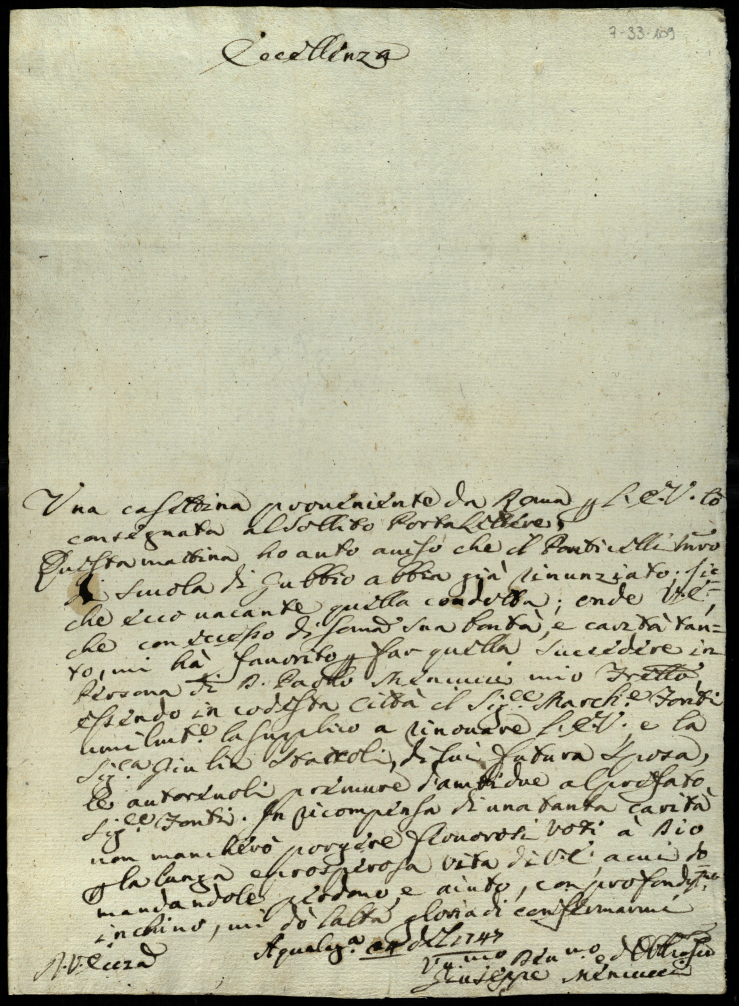 7-33-109
Eccellenza
Una cassettina proueniente da Roma p L.E.V. tò
consegnata al sollito Porta Lettere;
Questa mattina ho auto auiso che il Ponticelli
di scuola di Gubbio abbia già rinunziato. sic
che ecco uacante quella condotta; onde V.E.
che con eccesso di somã sua bontà, e carità tan=
to, mi hà fauorito p far quella succedere in
Persona di D. Paollo Menicucci mio Frãtto,
essendo in codesta Città il Sig.re March.e Fonti
umilmt.e la supplico a rinouare L.E.V, e la
Sig.ra Giulia di lui futura Sposa,
le autoreuoli premure d'ambidue al prefato
Sig.re Fonti. In ricompensa di una tanta carità
non mancherò porgere feruorosi uoti à Dio
p la lunga e prosperosa uita di V.E, a cui do
mandandole perdono, e aiuto, con profondiss.mo
inchino, mi dò l'alta gloria di confermarmi
Aqualag.a 1747
V.mo Deu.mo, ed Obb
Giuseppe Menicucci